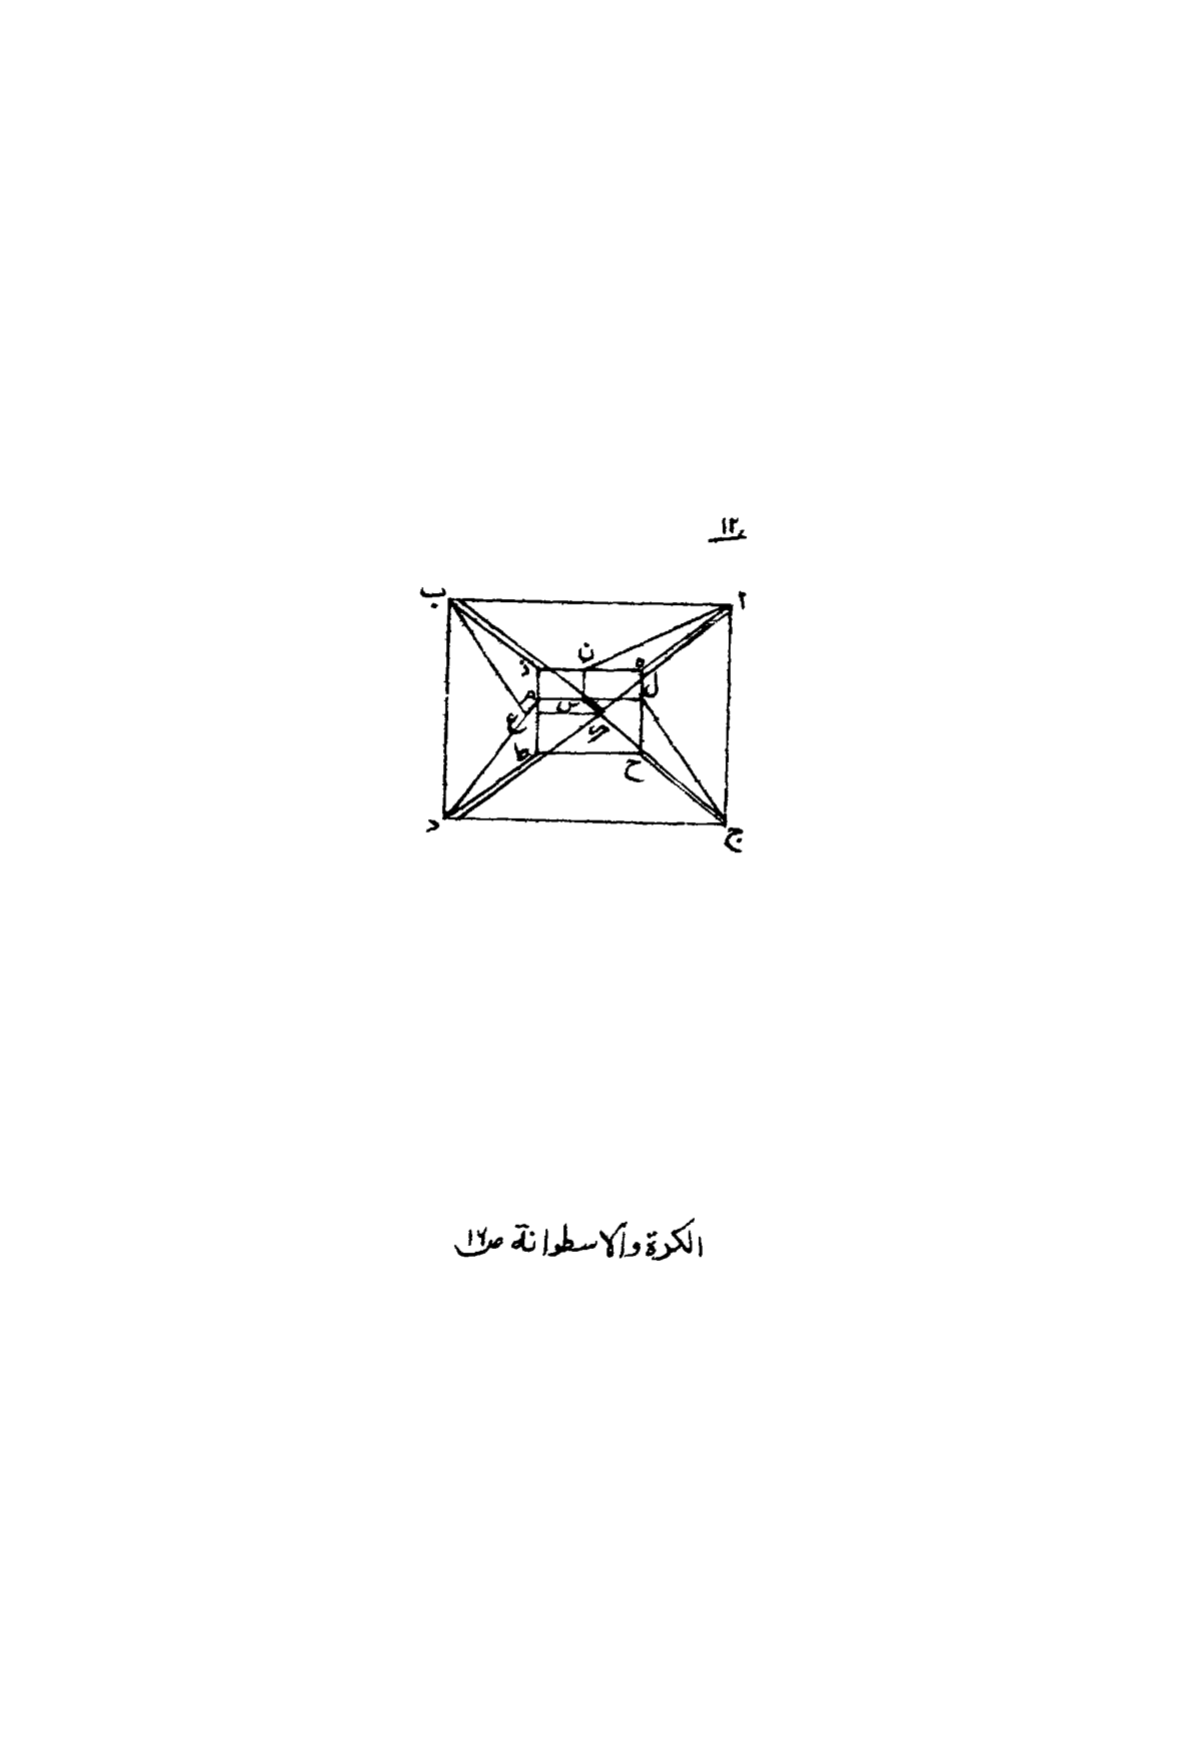 ١٢
ب ا
ن
ز ه
ل
م
س
ع ى
ط ح
د ج
الكرة والاسطوانة ص١٦